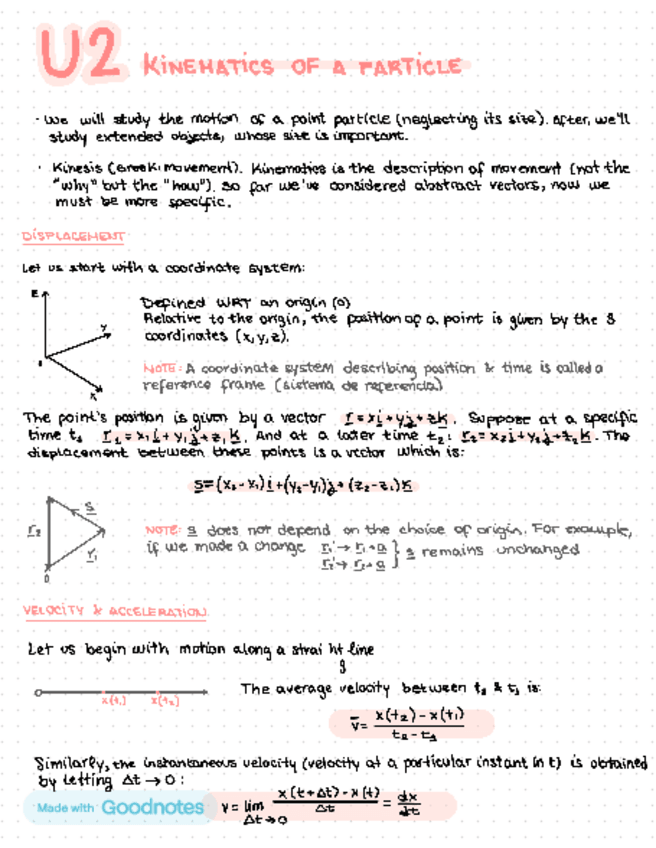 U2 KINEMATICS OF A PARTICLE
· We will study the motion of a point particle (neglecting its size). After, we'll
study extended objects, whose size is important.
· Kinesis (Greek: movement). Kinematics is the description of movement (not the
"why" but the "how"). So far we've considered abstract vectors, now we
must be more specific.
DISPLACEMENT
Let us start with a coordinate system:
z
y
x
Defined WRT an origin (0)
Relative to the origin, the position of a point is given by the 3
coordinates (x,y,z).
NOTE: A coordinate system describing position & time is called a
reference frame (sistema de referencia)
The point's position is given by a vector r = xi + yj + zk. Suppose at a specific
time t₁ r₁ = x₁i + y₁j + z₁k. And at a later time t₂: r₂ = x₂i + y₂j + z₂k. The
displacement between these points is a vector which is:
s = (x₂-x₁)i + (y₂-y₁)j + (z₂-z₁)k
r₂
s
r₁
0
NOTE: s does not depend on the choice of origin. For example,
if we made a change r₁' → r₁+a } s remains unchanged
r₂' → r₂+a
VELOCITY & ACCELERATION
Let us begin with motion along a strai ht line
g
x(t₁) x(t₂)
The average velocity between t₂ & t₁ is:
v̄ = x(t₂) - x(t₁) / t₂ - t₁
Similarly, the instantaneous velocity (velocity at a particular instant in t) is obtained
by letting Δt → 0:
Made with Goodnotes
v = lim Δt→0 x(t+Δt) - x(t) / Δt = dx/dt